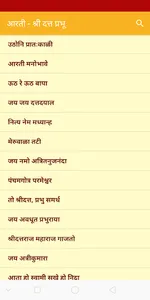 आरती - श्री दत्त प्रभू
उठोनि प्रातःकाळी
आरती मनोभावे
ऊठ रे ऊठ बापा
जय जय दत्तदयाल
नित्य नेम मध्यान्ह
मेरुवाळा तटी
जय नमो अत्रितनुजनंदा
पंचमगोत्र परमेश्वर
तो श्रीदत्त, प्रभु समर्थ
जय अवधूत प्रभुराया
श्रीदत्तराज महाराज गाजतो
जय अत्रीकुमारा
आता हो स्वामी सखे हो निद्रा